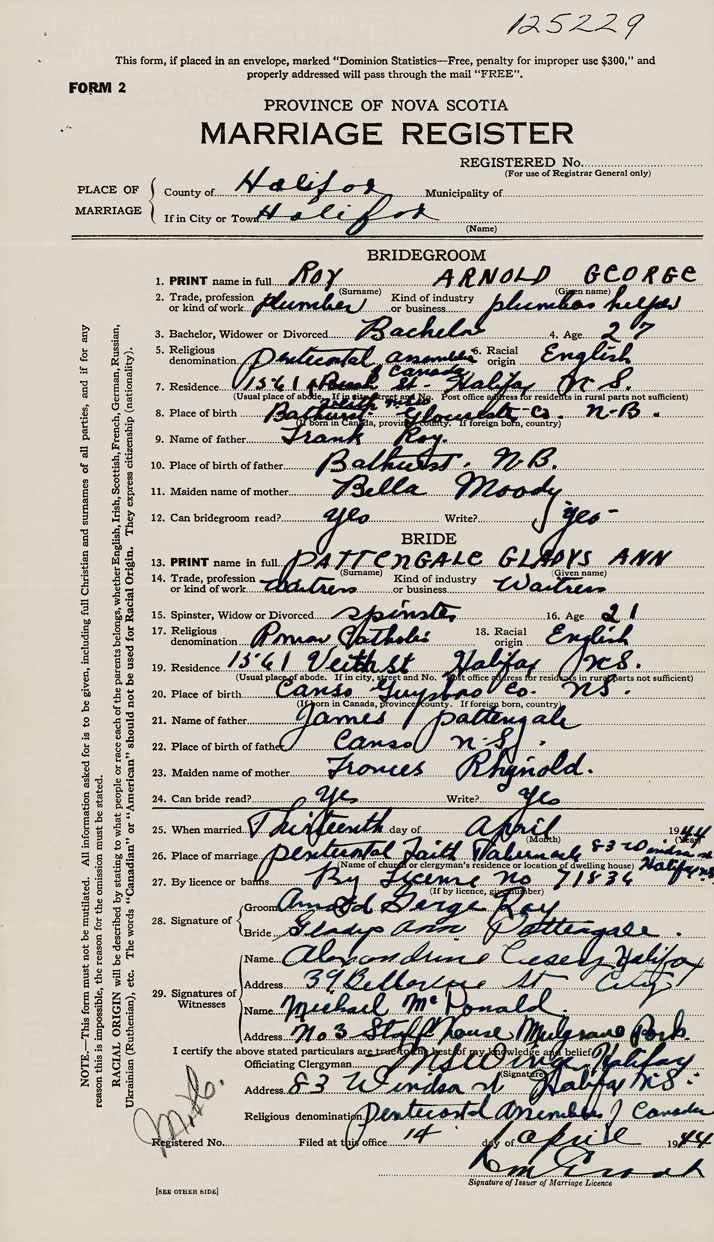 125229
This form, if placed in an envelope, marked "Dominion Statistics—Free, penalty for improper use $300," and
properly addressed will pass through the mail "FREE".
FORM 2
PROVINCE OF NOVA SCOTIA
MARRIAGE REGISTER
REGISTERED No.
(For use of Registrar General only)
PLACE OF MARRIAGE
County of Halifax Municipality of
If in City or Town Halifax
(Name)
BRIDEGROOM
1. PRINT name in full ROY ARNOLD GEORGE
(Surname) (Given name)
2. Trade, profession or kind of work plumber Kind of industry or business plumbers helper
3. Bachelor, Widower or Divorced Bachelor 4. Age 27
5. Religious denomination Pentecostal Assemblies Canada 6. Racial origin English
7. Residence 1561 St. Halifax N.S.
(Usual place of abode. If in city, street and No. Post office address for residents in rural parts not sufficient)
8. Place of birth Bathurst Gloucester Co. N-B.
(If born in Canada, province, county. If foreign born, country)
9. Name of father Frank Roy.
10. Place of birth of father Bathurst. N.B.
11. Maiden name of mother Bella Moody
12. Can bridegroom read? yes Write? yes
BRIDE
13. PRINT name in full PATTENGALE GLADYS ANN
(Surname) (Given name)
14. Trade, profession or kind of work Waitress Kind of industry or business Waitress
15. Spinster, Widow or Divorced spinster 16. Age 21
17. Religious denomination Roman Catholic 18. Racial origin English
19. Residence 1561 Veith St Halifax N.S.
(Usual place of abode. If in city, street and No. Post office address for residents in rural parts not sufficient)
20. Place of birth Canso Guysboro Co. N.S.
(If born in Canada, province, county. If foreign born, country)
21. Name of father James pattengale
22. Place of birth of father Canso n.S.
23. Maiden name of mother Frances Rhynold.
24. Can bride read? Yes Write? Yes
25. When married Thirteenth day of April 1944
(Month) (Year)
26. Place of marriage Pentecostal Faith Tabernacle 83 Windsor st Halifax N.S.
(Name of church or clergyman's residence or location of dwelling house)
27. By licence or banns By License no 71836
(If by licence, give number)
28. Signature of
Groom Arnold George Roy
Bride Gladys Ann Pattengale.
29. Signatures of Witnesses
Name Alexandrine Halifax
Address 39 St City
Name Michael McDonald
Address No 3 Staff house Mulgrave Park.
I certify the above stated particulars are true to the best of my knowledge and belief
Officiating Clergyman Halifax
(Signature)
Address 83 Windsor st Halifax N.S.
Religious denomination Pentecostal Assemblies of Canada
Registered No. Filed at this office 14 day of april 1944
Signature of Issuer of Marriage Licence
[SEE OTHER SIDE]
NOTE.—This form must not be mutilated. All information asked for is to be given, including full Christian and surnames of all parties, and if for any
reason this is impossible, the reason for the omission must be stated.
RACIAL ORIGIN will be described by stating to what people or race each of the parents belongs, whether English, Irish, Scottish, French, German, Russian,
Ukrainian (Ruthenian), etc. The words "Canadian" or "American" should not be used for Racial Origin. They express citizenship (nationality).